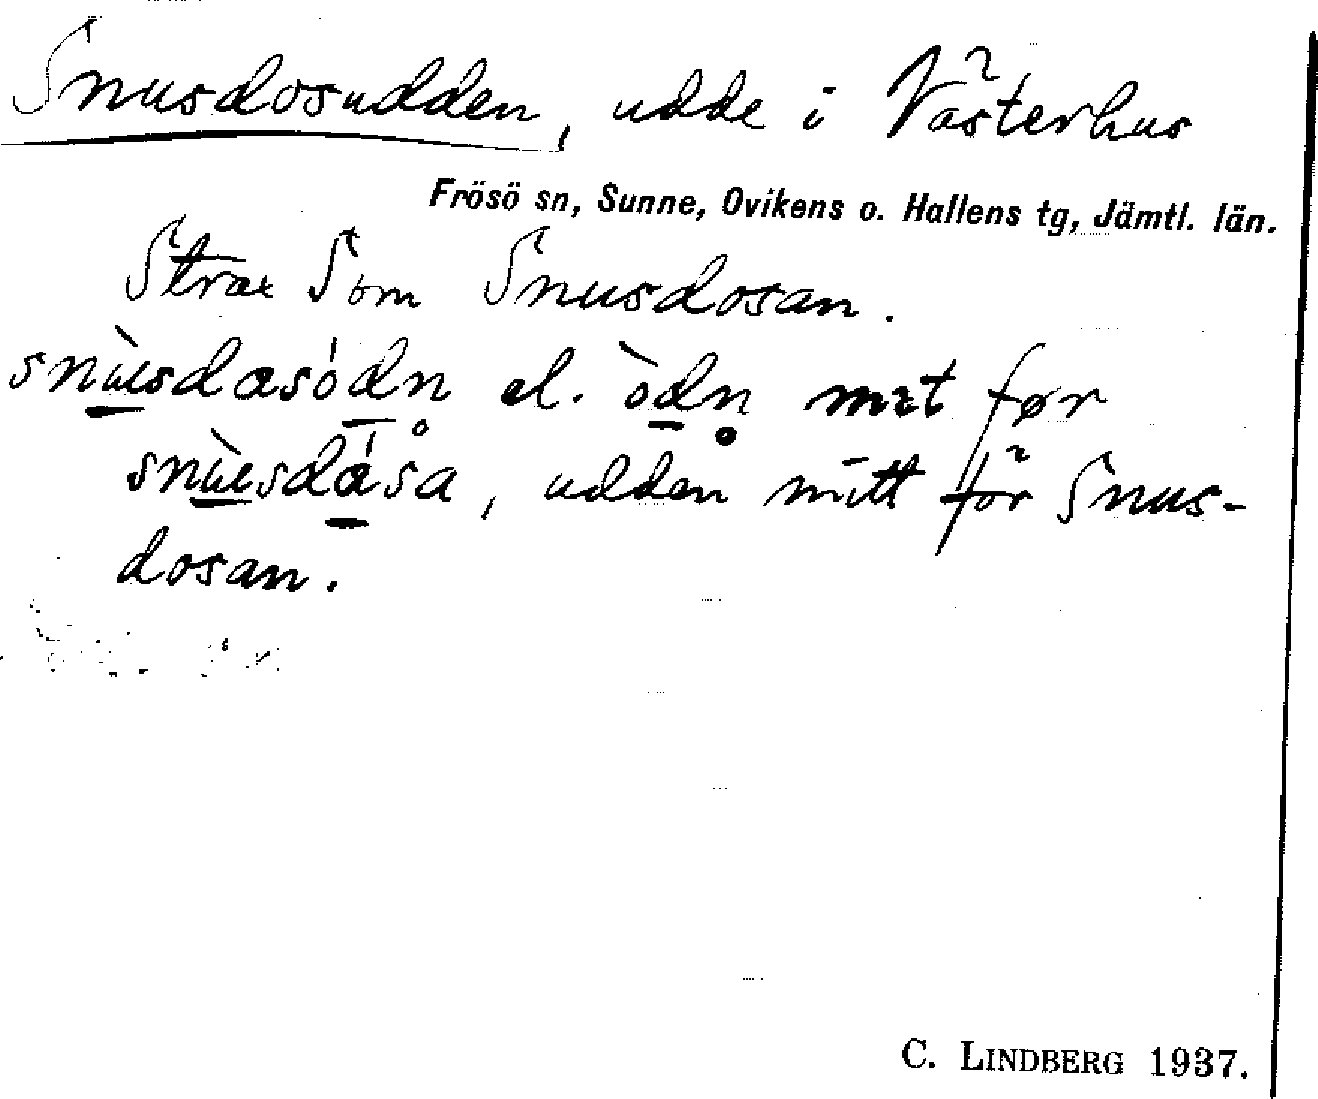 Snusdosudden, udde i Västerhus
Frösö sn, Sunne, Ovikens o. Hallens tg, Jämtl. län.
Strax S om Snusdosan.
snùsdasódn el. òdn mɪt før
snùsdása, udden mitt för Snus-
dosan.
C. LINDBERG 1937.